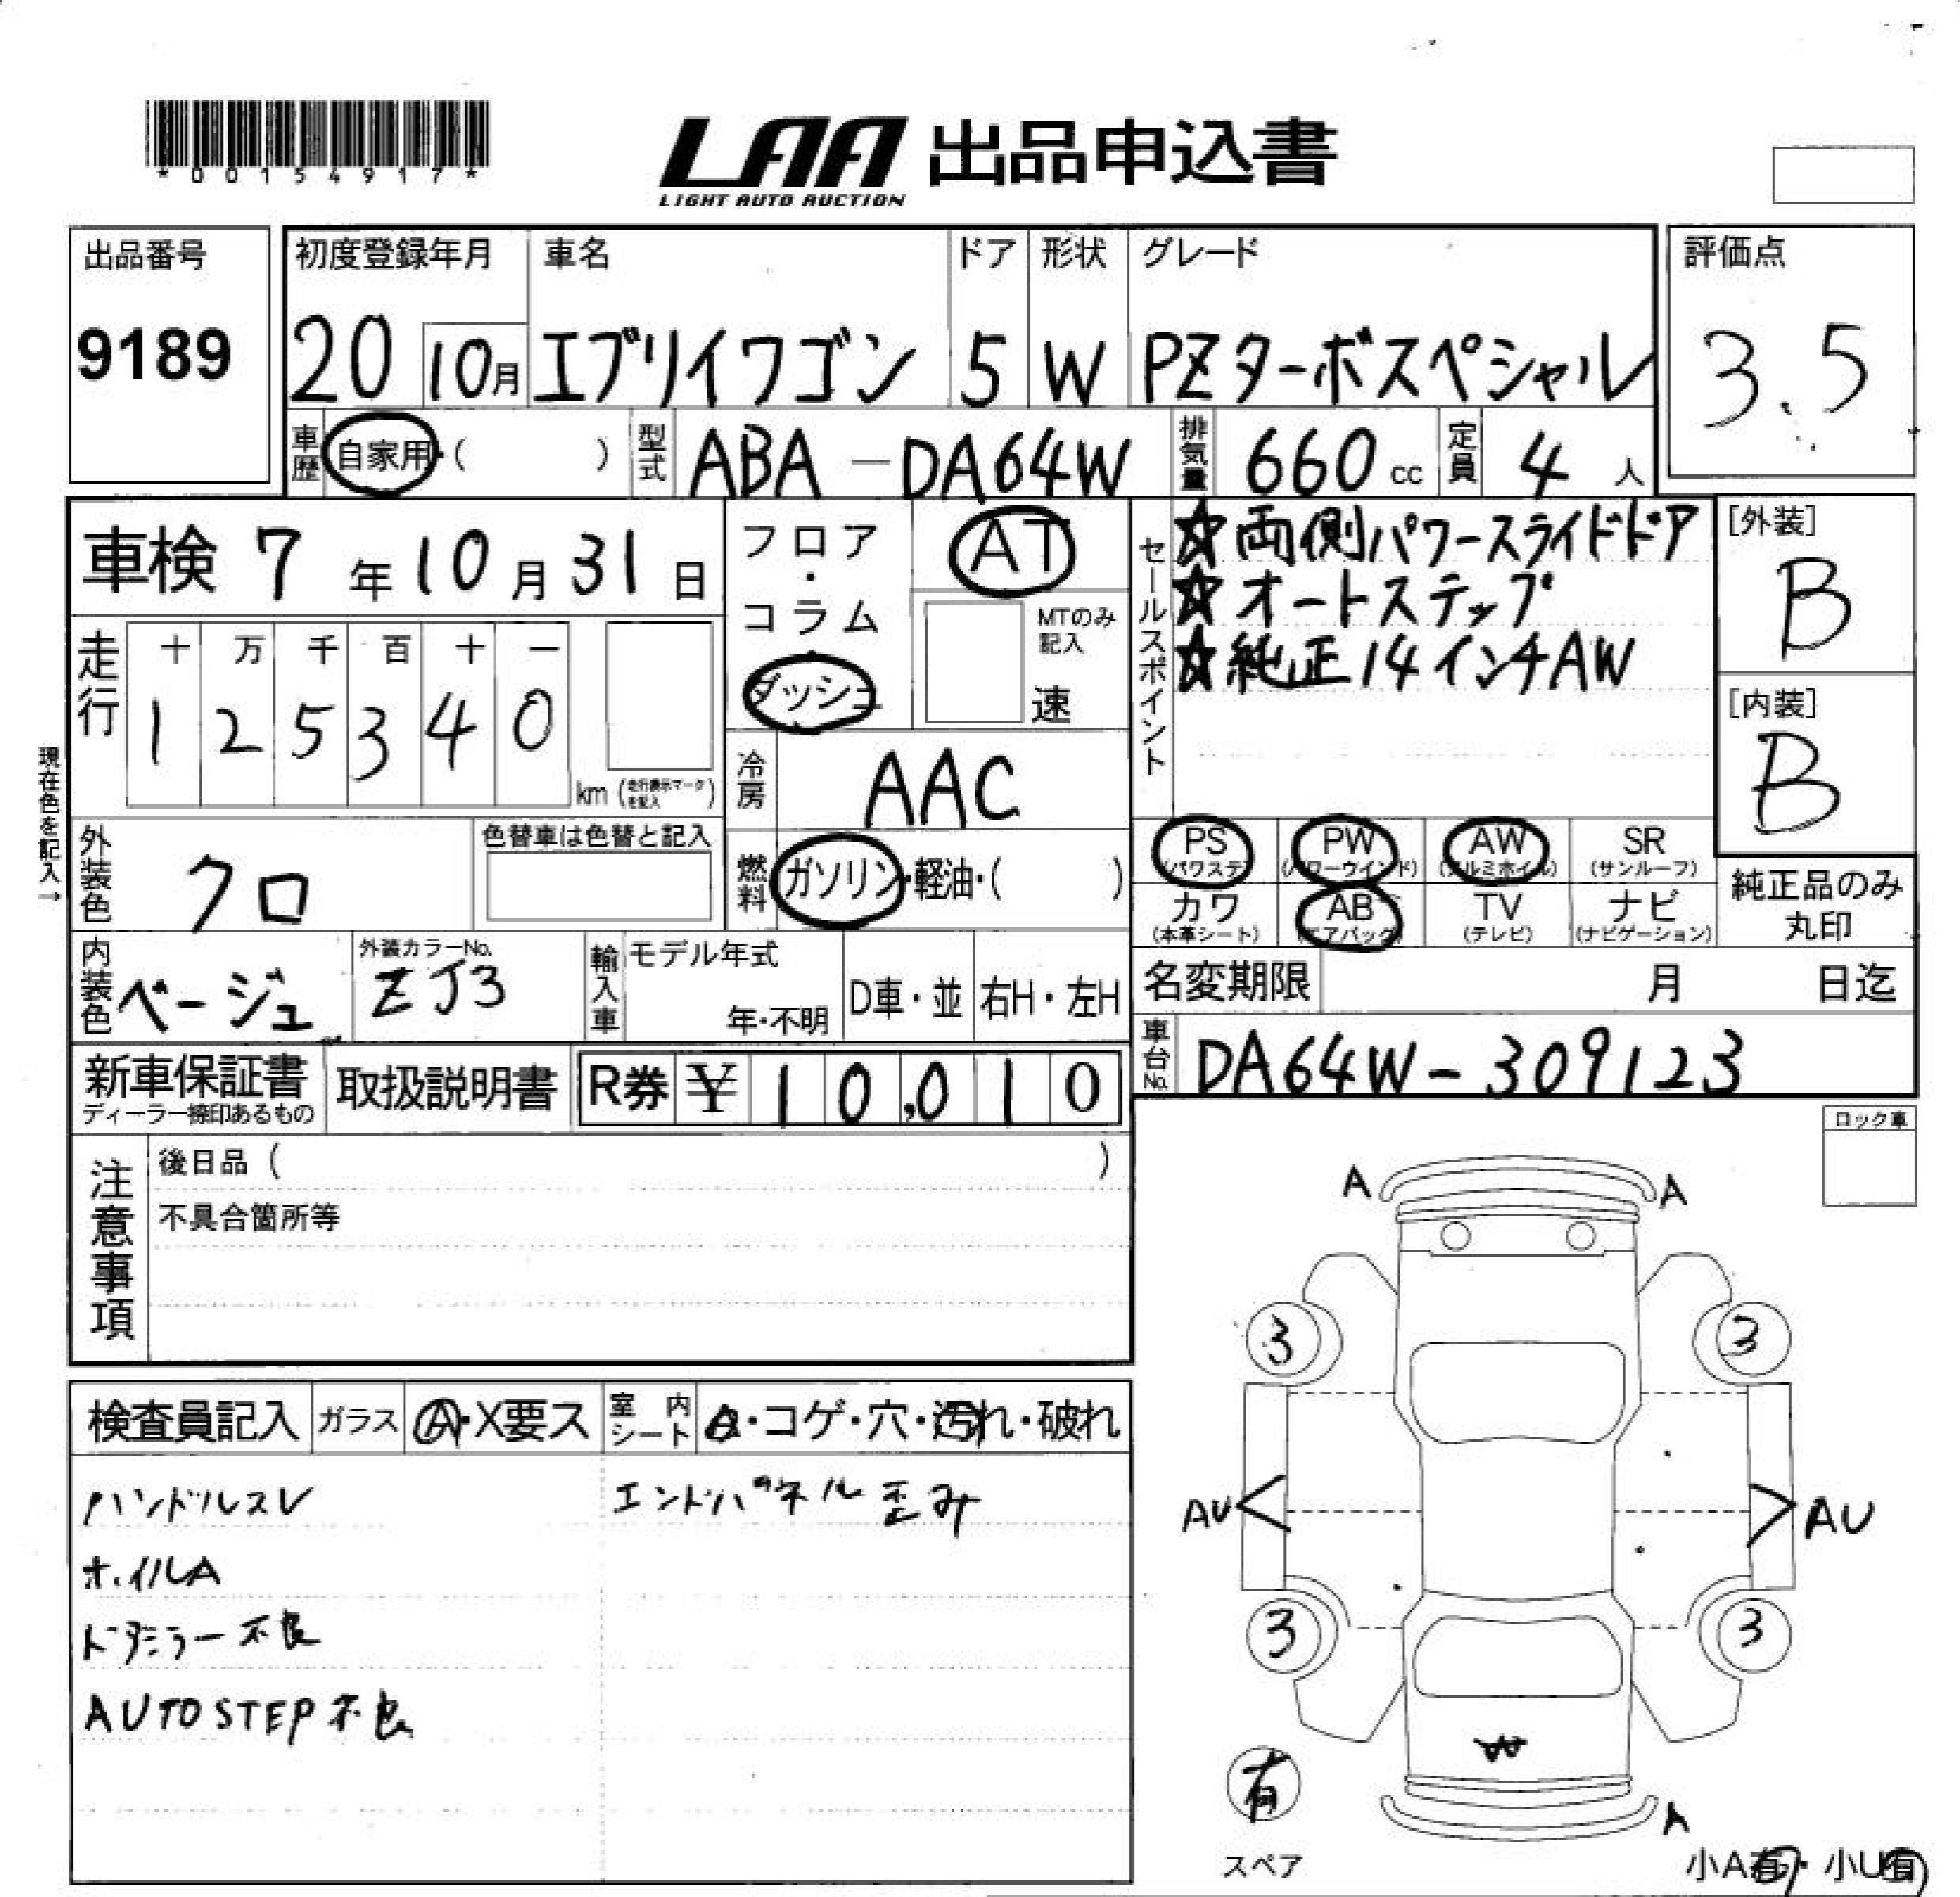 *00154917*
LAA 出品申込書
LIGHT AUTO AUCTION
出品番号 初度登録年月 車名 ドア 形状 グレード 評価点
9189 20 10月 エブリイワゴン 5 W PZターボスペシャル 3.5
車歴 自家用・( ) 型式 ABA-DA64W 排気量 660 cc 定員 4 人
車検 7 年 10 月 31 日
フロア・コラム・ダッシュ
AT
MTのみ記入
速
セールスポイント
☆両側パワースライドドア
☆オートステップ
☆純正14インチAW
[外装]
B
[内装]
B
走行 十 万 千 百 十 一
1 2 5 3 4 0
km (走行表示マークを記入)
冷房 AAC
現在色を記入→
外装色 クロ
色替車は色替と記入
燃料 ガソリン・軽油・( )
PS (パワステ) PW (パワーウインド) AW (アルミホイル) SR (サンルーフ)
カワ (本革シート) AB (エアバック) TV (テレビ) ナビ (ナビゲーション)
純正品のみ丸印
内装色 ベージュ
外装カラーNo.
ZJ3
輸入車 モデル年式 年・不明 D車・並 右H・左H
名変期限 月 日迄
車台No. DA64W-309123
新車保証書 取扱説明書 R券 ¥ 10,010
ディーラー捺印あるもの
ロック車
注意事項
後日品 ( )
不具合箇所等
検査員記入 ガラス A・X要ス 室内シート ・コゲ・穴・汚れ・破れ
ハンドルスレ エンドパネル歪み
ホイルA
ドアミラー不良
AUTO STEP 不良
A A
3 3
AU AU
3 3
W
有
A
スペア
小A有・小U有